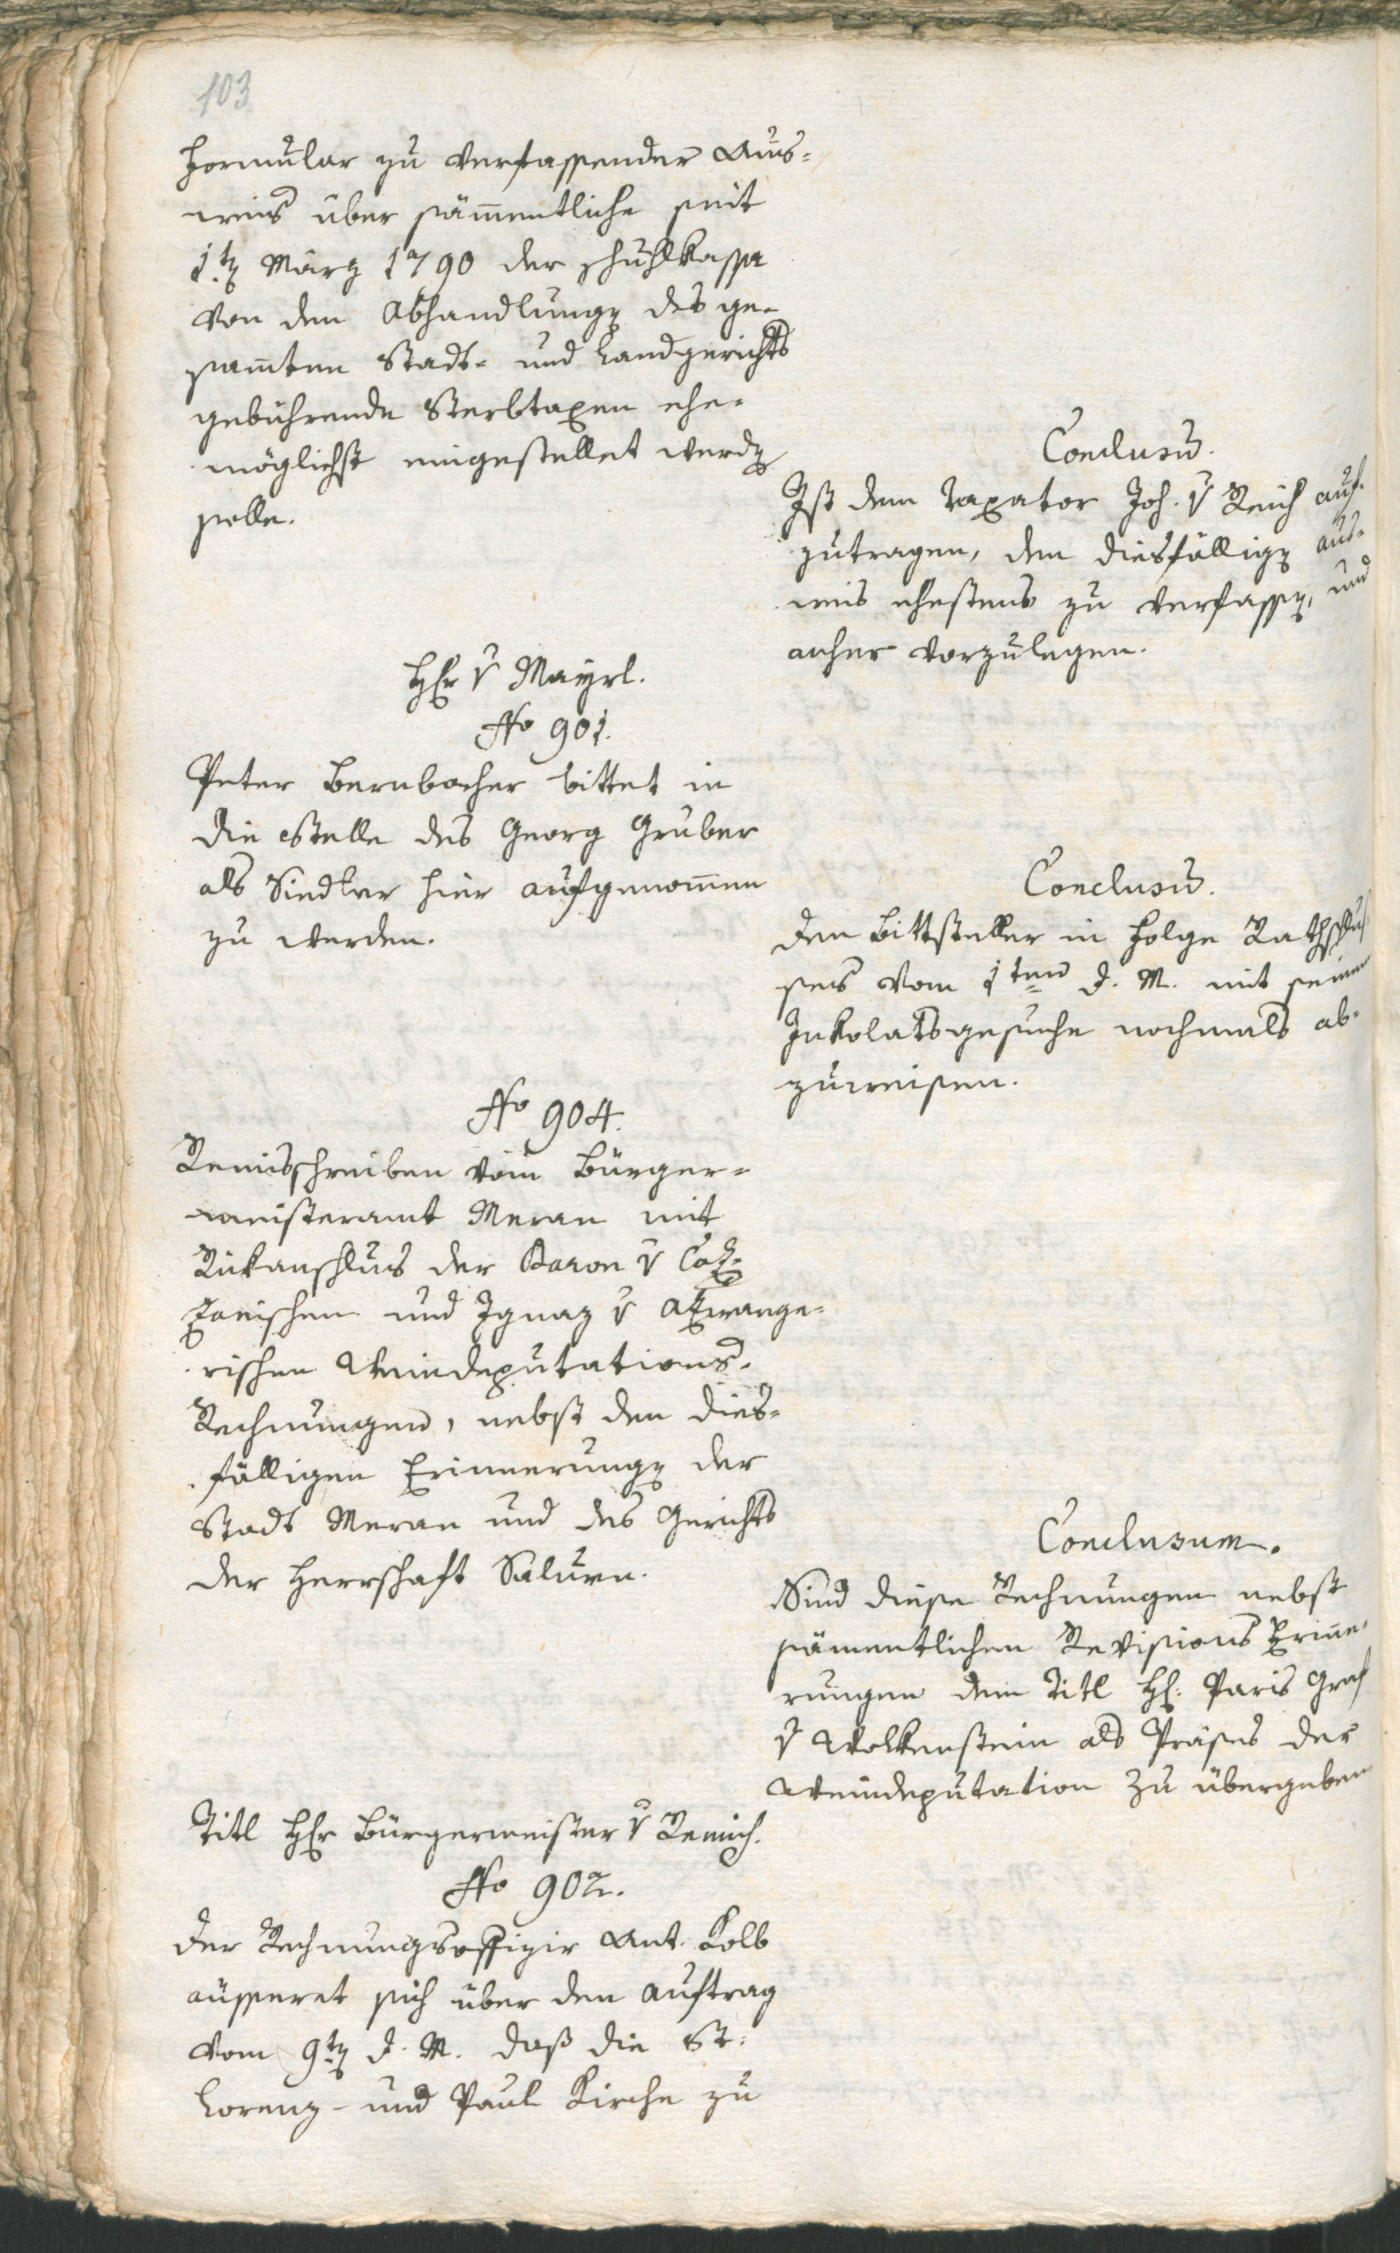 103
Formular zu verfassender Aus-
weis über säm̄entliche seit
1tn März 1790 der Schuhlkassa
von den Abhandlungn des ge-
sam̄ten Stadt- und Landgerichts
gebührende Sterbtaxen ehe-
möglichst eingestellet werdn
solle.
Conclusū.
Ist dem Taxator Joh. v Reich auf-
zutragen, den diesfällign Aus-
weis ehestens zu verfassn, und
anher vorzulegen.
Hr v Mayrl.
No 901.
Peter Bernbacher bittet in
die Stelle des Georg Gruber
als Siedler hier aufgenom̄en
zu werden.
Conclusū.
Den Bittsteller in Folge Rathschlus
ses vom 1ten d. M. mit seinem
Inkolatsgesuche nochmals ab-
zuweisen.
No 904.
Remisschreiben vom Bürger-
meisteramt Meran mit
Rükanschluss der Baron v
und Ignaz v
rischen Weindeputations-
Rechnungen, nebst den dies-
fälligen Erinnerungn der
Stadt Meran und des Gerichts
der Herrschaft Salurn.
Conclusum.
Sind diese Rechnungen nebst
säm̄entlichen Revisions Erin̄e-
rungen dem Titl H: Paris Graf
v Wolkenstein als Präses der
Weindeputation zu übergeben
Titl Hr Bürgermeister v Remich.
No 902.
Der Rechnungsoffizir Ant. Kolb
äusseret sich über den Auftrag
vom 9tn d. M. daß die St:
Lorenz- und Paul Kirche zu